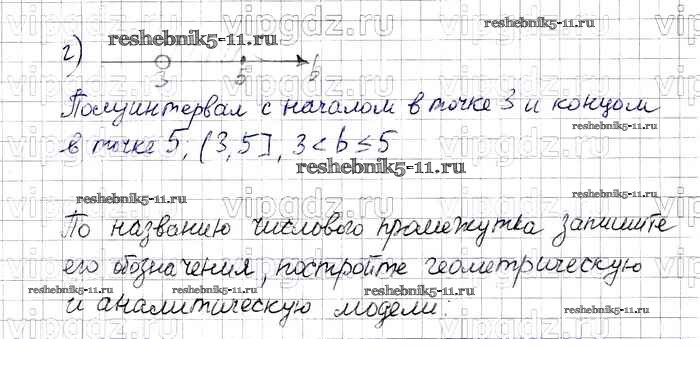 г)
3 5 b
Полуинтервал с началом в точке 3 и концом
в точке 5, (3,5], 3<b≤5
По названию числового промежутка запишите
его обозначения, постройте геометрическую
и аналитическую модели.
reshebnik5-11.ru
reshebnik5-11.ru
reshebnik5-11.ru
reshebnik5-11.ru
reshebnik5-11.ru
reshebnik5-11.ru
reshebnik5-11.ru
reshebnik5-11.ru
reshebnik5-11.ru